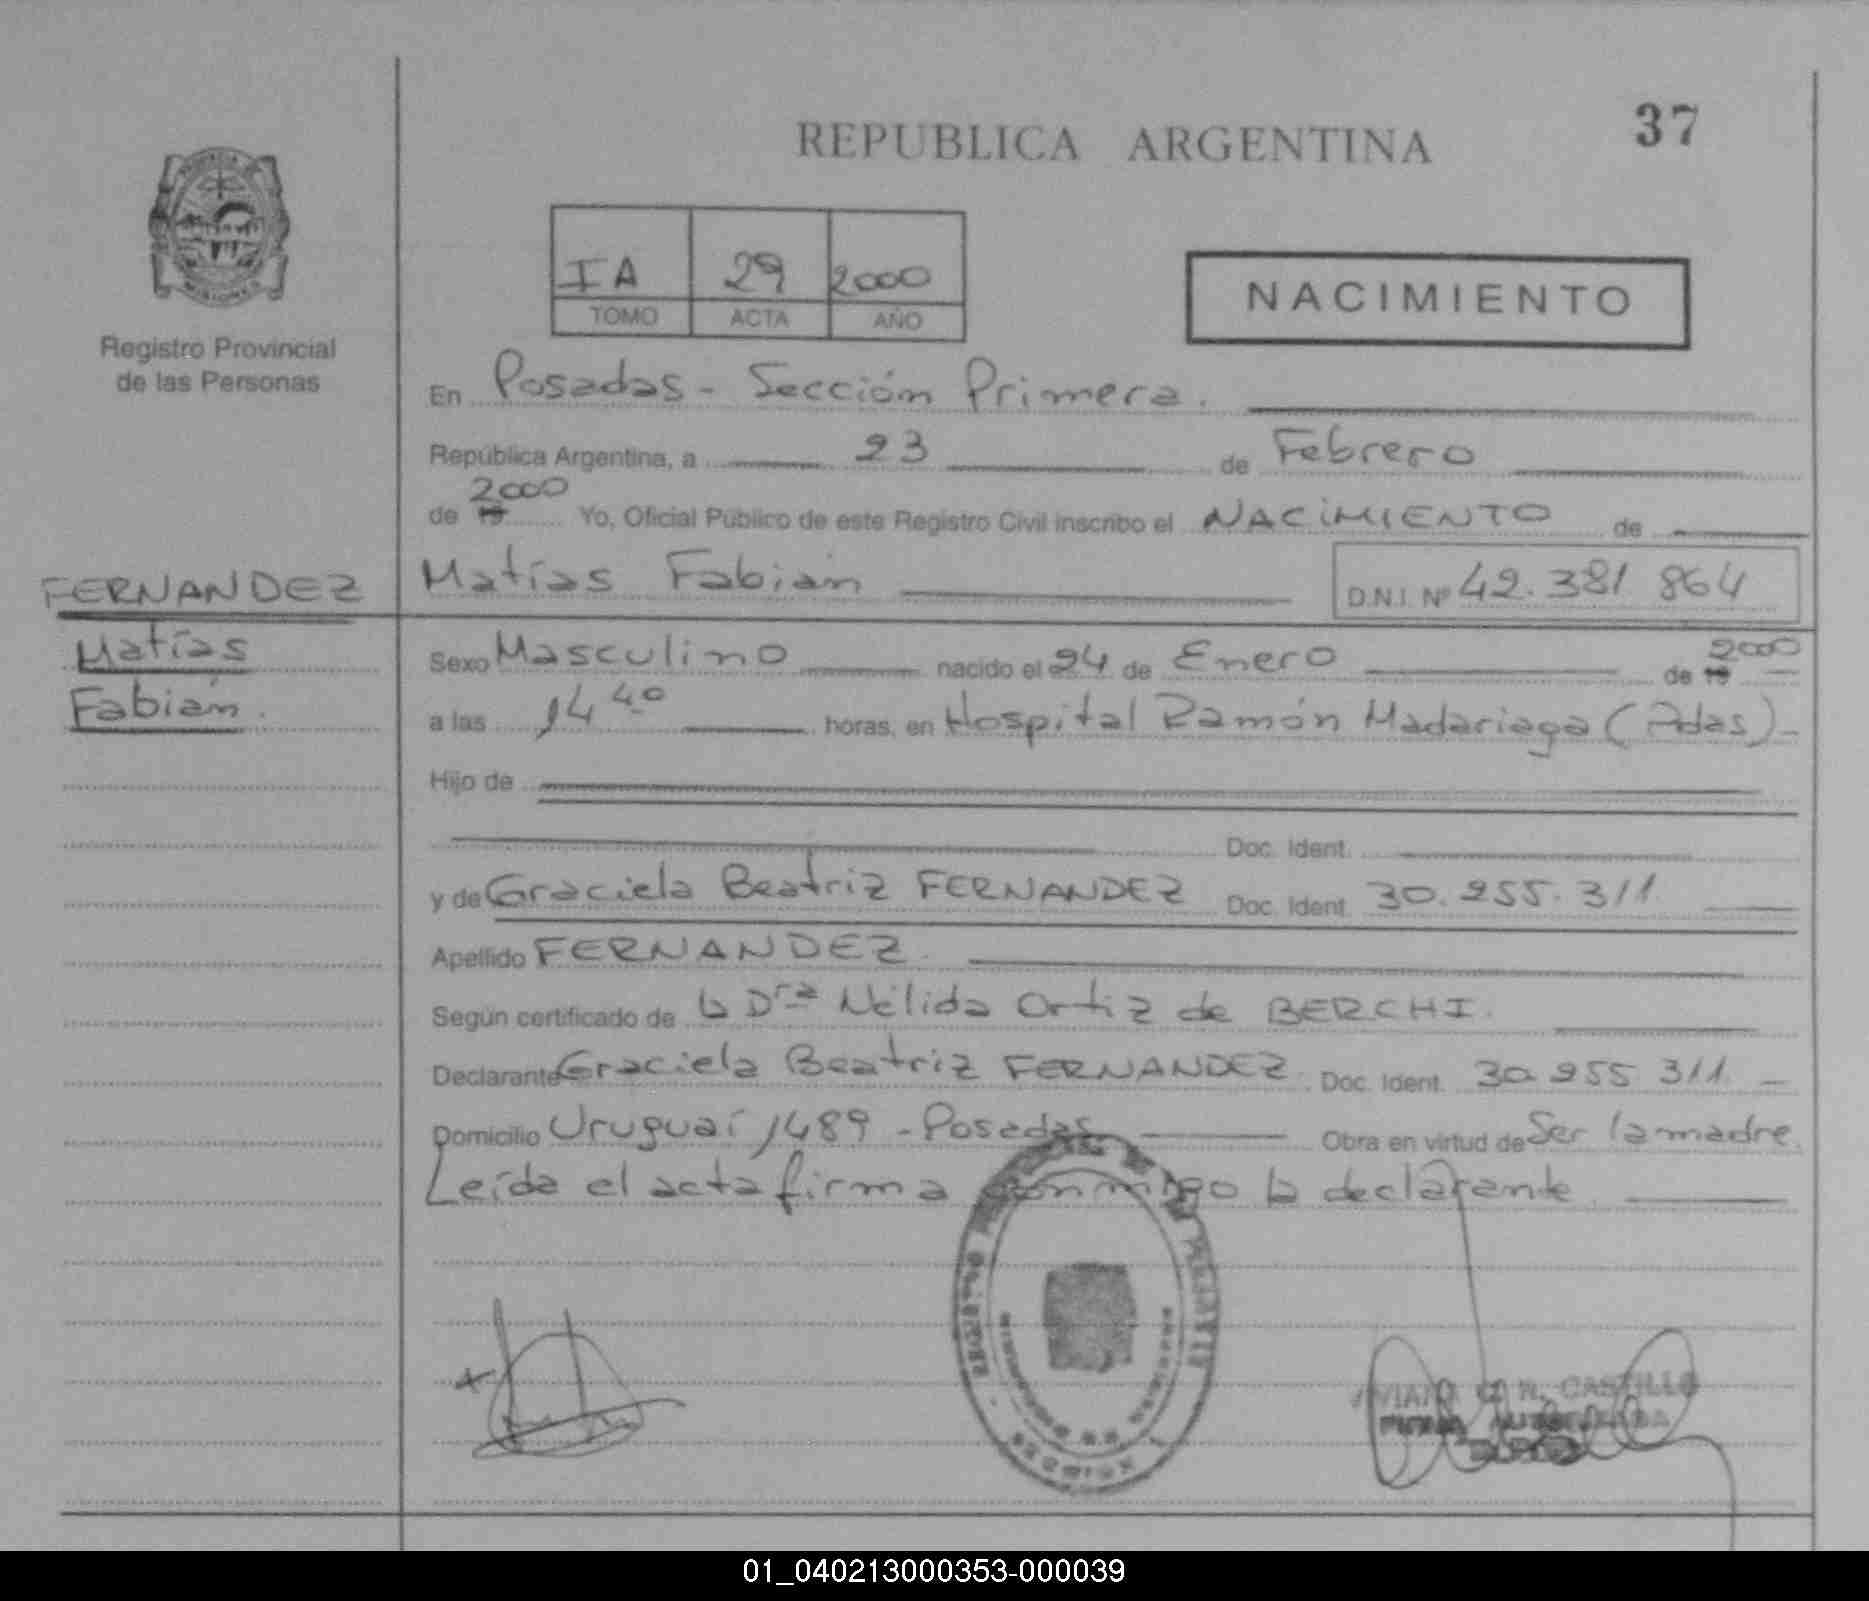 REPUBLICA ARGENTINA
37
IA 29 2000
TOMO ACTA AÑO
NACIMIENTO
Registro Provincial
de las Personas
En Posadas - Sección Primera.
República Argentina, a 23 de Febrero
2000
de 19 Yo, Oficial Público de este Registro Civil inscribo el NACIMIENTO de
FERNANDEZ
Matías
Fabián.
Matías Fabián D.N.I. Nº 42.381 864
Sexo Masculino nacido el 24 de Enero de 19 2000
a las 14 40 horas, en Hospital Ramón Madariaga (Pdas)-
Hijo de
Doc. Ident.
y de Graciela Beatriz FERNANDEZ Doc. Ident. 30.255.311.
Apellido FERNANDEZ.
Según certificado de la Dra Nélida Ortiz de BERCHI.
Declarante Graciela Beatriz FERNANDEZ. Doc. Ident. 30 255 311. -
Domicilio Uruguaí 1489 - Posadas. Obra en virtud de Ser la madre.
Leída el acta firma conmigo la declarante.
CASTILLO
01_040213000353-000039